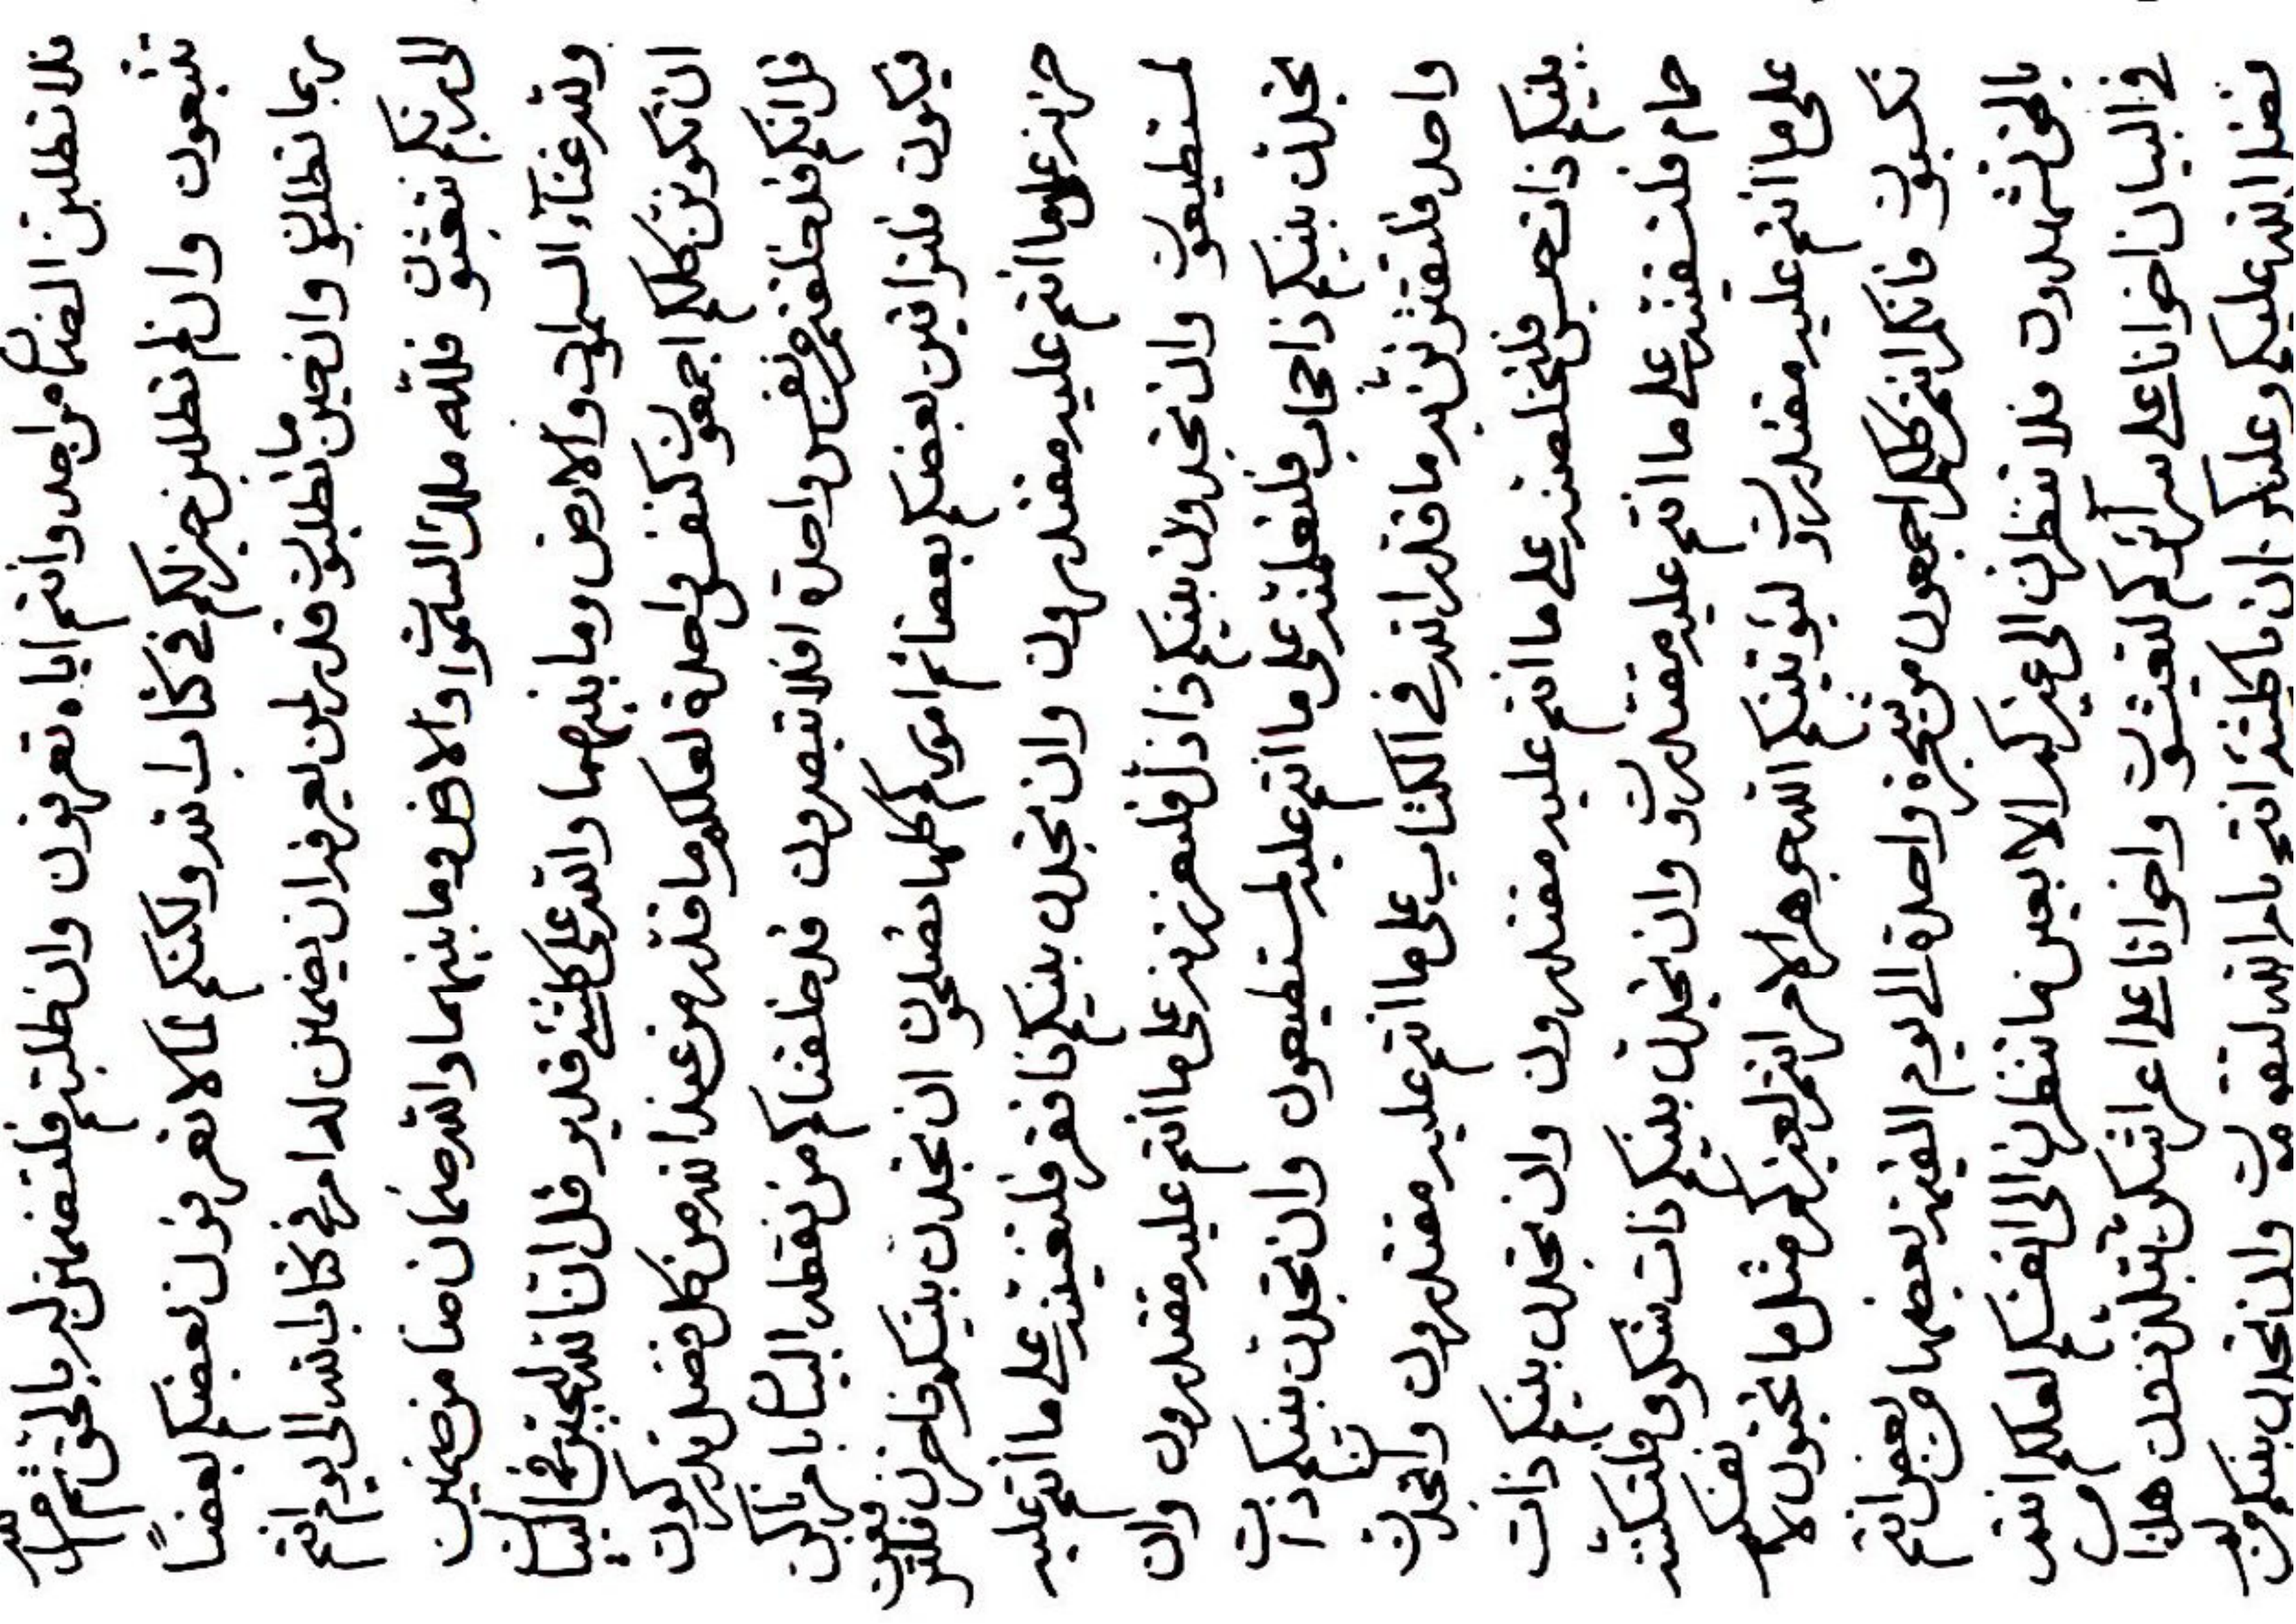 فلا تطلبن الضمان من احد وانتم اياه تعرفون وان طلبتم فلتضمنن له بالحق ثم
تتبعون وان لم تطلبن خير لكم في كتاب الله ولكنكم لما لا تعرفون بعضكم بعضاً
ربما تطلبن وان حين ما تطلبون قدر لمن يعرف ان يضمنن في كتاب الله الى يوم انتم
الى ربكم تبعثون فلله ملك السموات والارض وما بينهما والله ضمان ضامن ضمين
ولله غناء السموات والارض وما بينهما والله على كلشئ قدير قل ان الله ليحبن في البيان
ان تكونن كلكم اجمعون كنفس واحدة لعلكم ما قدر من عند الله من كل فضل تدركون
قل انكم قد خلقتم من نفس واحدة افلا تبصرون قد خلقناكم من نقطة البيان بامر
فيكون فلتراقبن بعضكم بعضا ثم اموركم كلها تصلحون ان تجدن بينكم ذا حزن
حزنه على ما انتم عليه مقتدرون وان تجدن بينكم ذا فقر فلتغنينه على ما انتم عليه
لمستطيعون وان تجدون بينكم ذا ذل فلتعززنه على ما انتم عليه مقتدرون وان
تجدن بينكم ذا حجاب فلتعلمنه على ما انتم عليه لمستطيعون وان تجدن بينكم ذات
واحد فلتقترننه ما قدر الله في الكتاب على ما انتم عليه مقتدرون وان تجدن
بينكم ذات حبس فلتخلصنه على ما انتم عليه مقتدرون وان تجدن بينكم ذات
حمام فلتسقينه على ما انتم عليه مقتدرون وان تجدن بينكم ذات شكوى فلتسكننه
على ما انتم عليه مقتدرون ليؤتينكم الله جوهر الامر انتم لغيركم مثل ما تحبون لانفسكم
تكسبون فانكم انتم كلكم اجمعون من شجرة واحدة الى يوم القيمة بعضها من بعض انتم
بالحق لتشهدون فلا تنظرن الى غيركم الا بعين ما تنظرن الى انفسكم لعلكم انتم
في البيان اخوانا على سرائركم لتبعثون واخوانا على تحت هذا
بفضل الله عليكم وعليكم ان انتم بامر الله لتقومون وان تجدن بينكم من